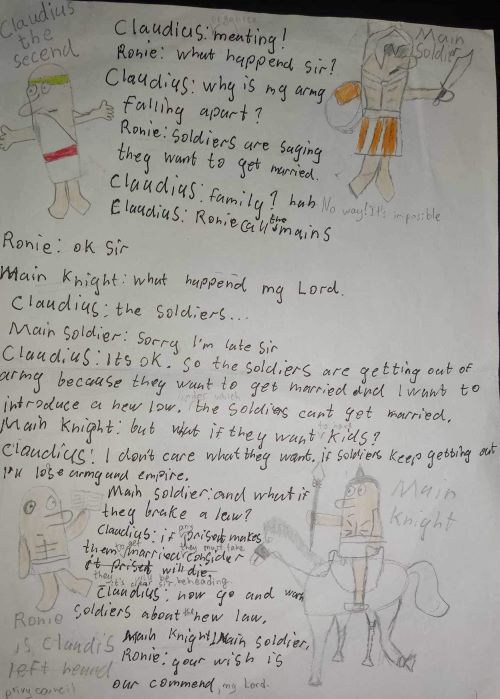 Claudius
the
secend
organise
Claudius: meating!
Main
Soldier
Ronie: what happend sir?
Claudius: why is my army
falling apart?
Ronie: soldiers are saying
they want to get married.
Claudius: family? hah No way! It's imposible
Claudius: Ronie call the mains
Ronie: ok sir
Main Knight: what happend my Lord.
Claudius: the soldiers...
Main Soldier: sorry I'm late sir
Claudius: Its ok. so the soldiers are getting out of
army because they want to get married and I want to
introduce a new low. under which the soldiers cant get married.
Main Knight: but what if they want to have kids?
Claudius: I don't care what they want. if soldiers keep getting out
I'll lose army and empire.
Main soldier: and what if
they brake a law?
Claudius: if any priset makes
them to get married they must take
consider
priset will die.
they
it's clear sir beheading
Claudius: now go and warn
soldiers about the new law.
Main Knight, Main soldier,
Ronie: your wish is
our commend, my Lord.
Main
Knight
Ronie
is Claudi's
left heand
privy council